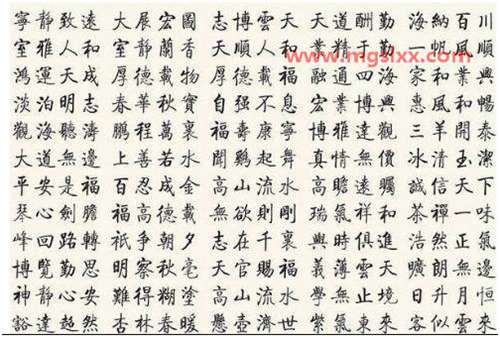 寧靜致遠 大展宏圖 志博雲天 天道酬勤 海納百川
室雅人和 室靜蘭香 順人和 業精于勤 一帆風順
www.mgslxx.com
鴻運天成 厚德載物 厚德載福 融通四海 家和業興
淡泊明志 春華秋實 自强不息 宏業博興 惠風和暢
觀海聽濤 鵬程萬裏 福壽康寧 雅達觀 三羊開泰
大道無邊 上善若水 聞鷄起舞 真情無價 冰清玉潔
平安是福 百忍成金 高山流水 高瞻遠矚 誠信天下
琴心劍膽 福高德載 無欲則剛 瑞氣祥和 茶禪一味
峰回路轉 祇爭朝夕 志在千裏 與時俱進 浩然正氣
博覽勤思 明察秋毫 天官賜福 義薄雲天 曠然無邊
神靜心安 難得糊塗 高山流水 學無止境 日升月恒
豁達超然 杏林春暖 懸壺濟世 紫氣東來 客似雲來